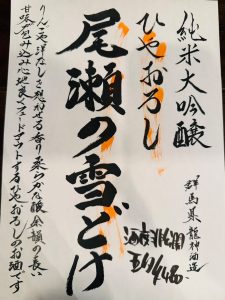 純米大吟醸
ひやおろし
尾瀬の雪どけ
群馬県龍神酒造
りんごや洋なしを想わせる香り柔らかな酸余韻の長い
甘味が包み込み心地良くフェードアウトするひやおろしのお酒です